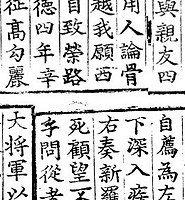 與親友四
用人論骨
越我願西
自致榮路
德四年辛
征高句麗
自薦為左
下深入疾
右奏新羅
死顧望不
乎問從者
大將軍以